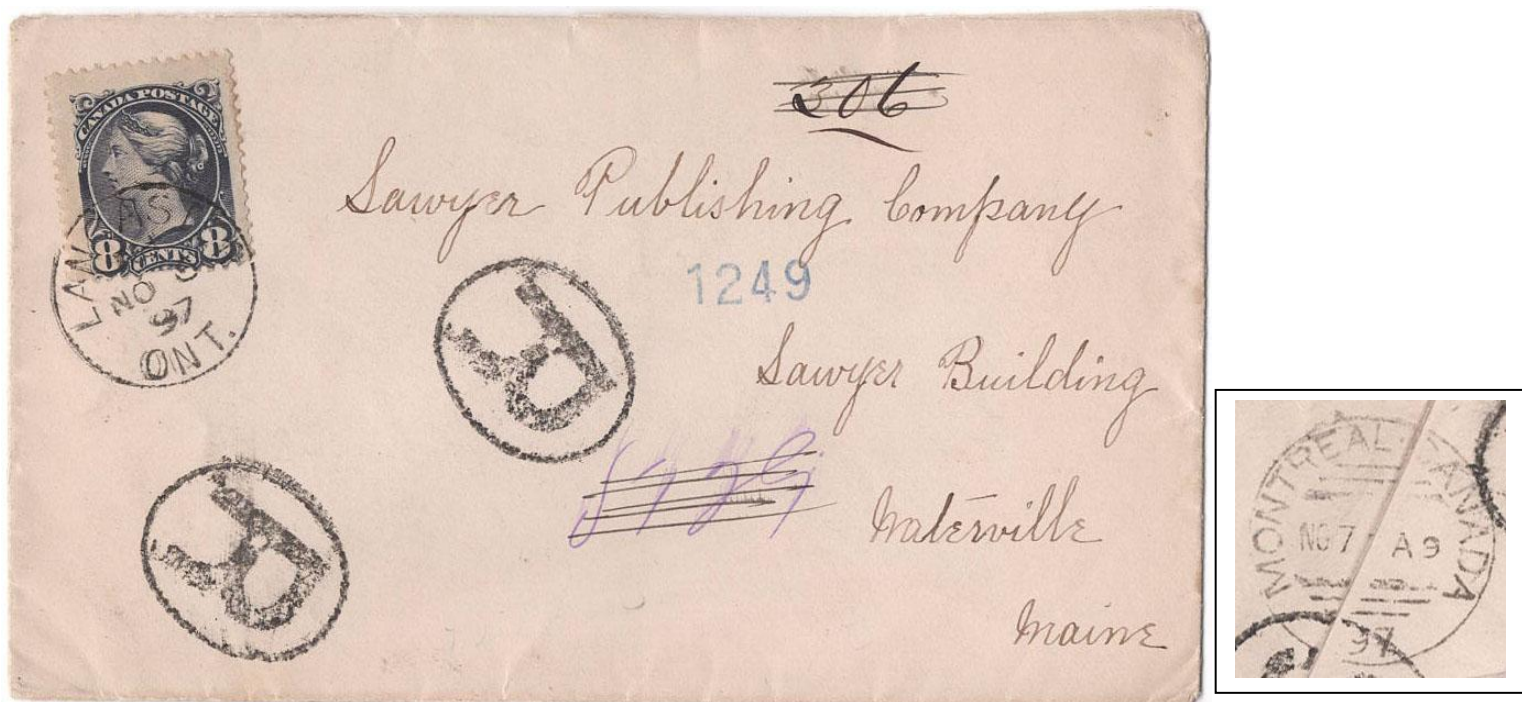 CANADA POSTAGE
8 CENTS 8
NO
97
ONT.
306
Sawyer Publishing Company
1249
Sawyer Building
Waterville
Maine
R
R
MONTREAL CANADA
NO 7 A 9
97